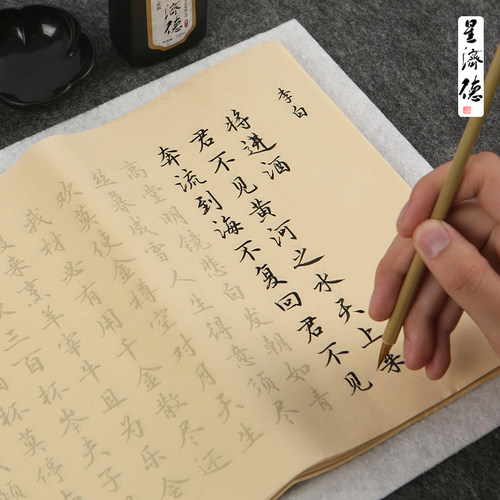 星濟德
濟德
将进酒
李白
君不见黄河之水天上来
奔流到海不复回君不见
高堂明镜悲白发朝如青
丝暮成雪人生得意须尽
欢莫使金樽空对月天生
我材必有用千金散尽还
来烹羊宰牛且为乐会
三百杯岑夫子
杯莫停